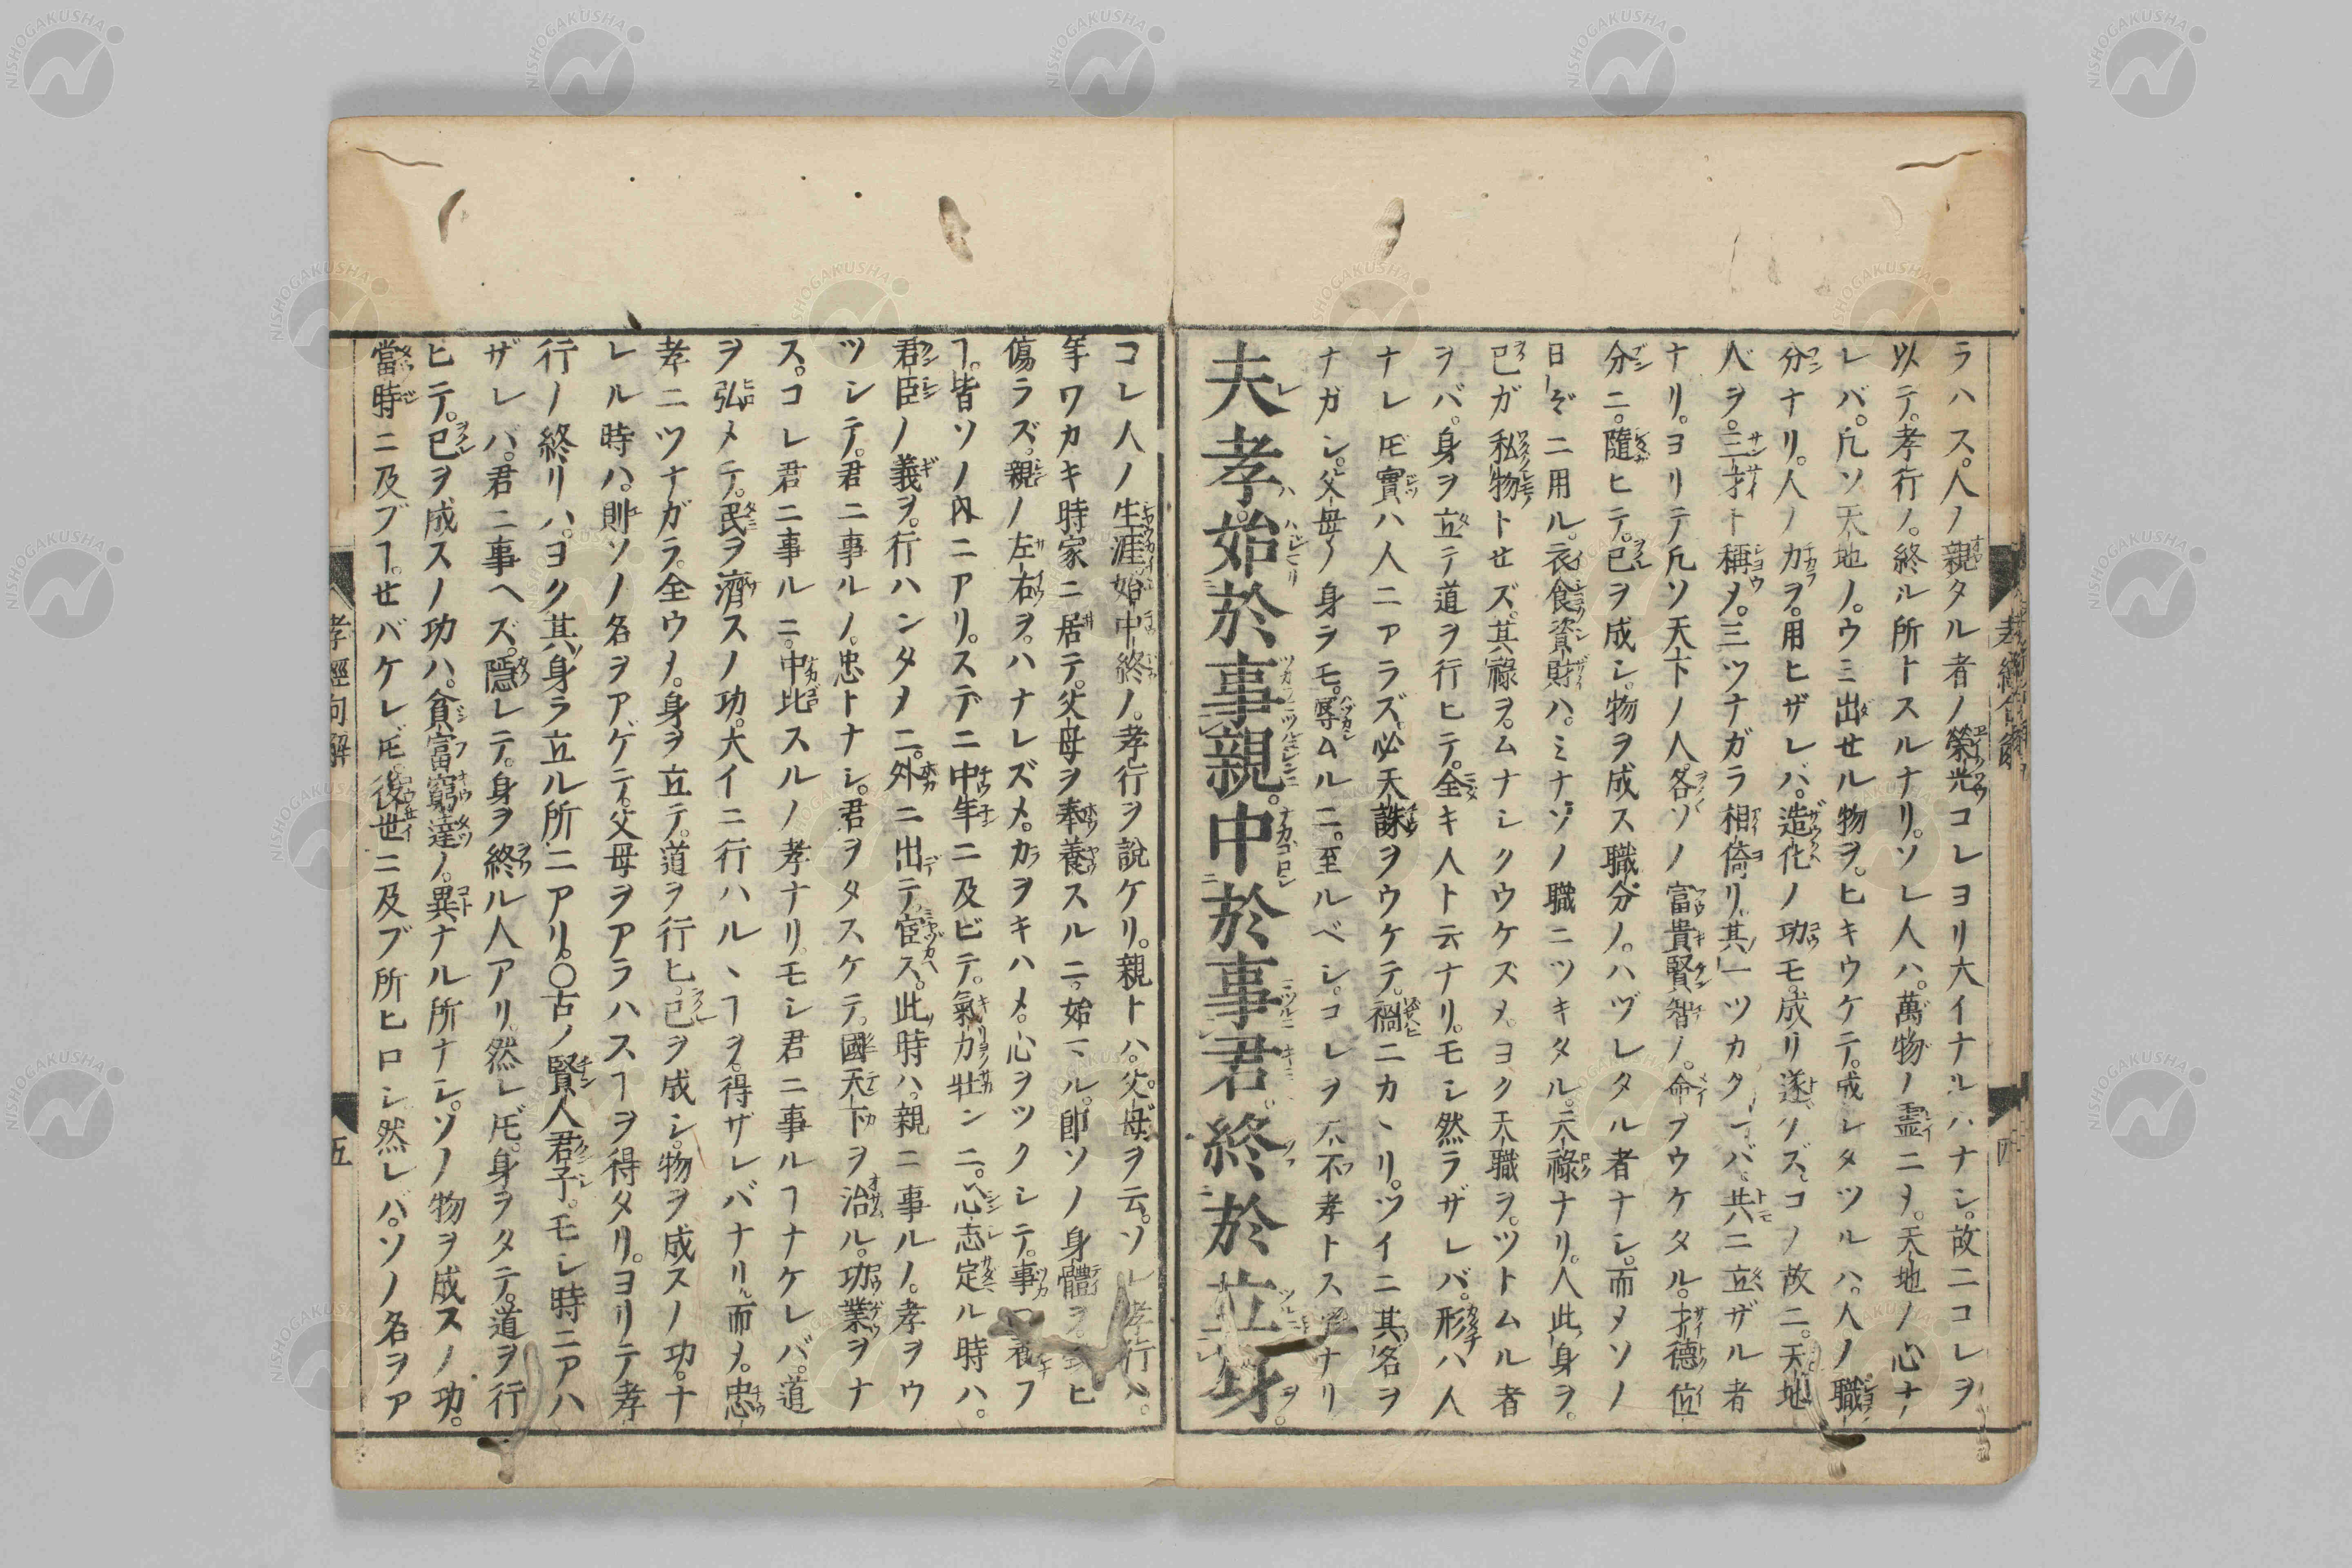 ラハス。人ノ親タル者ノ榮光コレヨリ大イナルハナシ。故ニコレヲ
以テ。孝行ノ。終ル所トスルナリ。ソレ人ハ。萬物ノ霊ニメ。天地ノ心ナ
レバ。凡ソ天地ノ。ウミ出セル物ヲ。ヒキウケテ。成シタツルハ。人ノ職
分ナリ。人ノ力ヲ。用ヒザレバ。造化ノ功モ。成リ遂ゲズ。コノ故ニ。天地
人ヲ。三才ト稱メ。三ツナガラ相倚リ。其一ツカクレバ。共ニ立ザル者
ナリ。ヨリテ凡ソ天下ノ人。各ソノ富貴賢智ノ。命ヲウケタル。才德位
分ニ。隨ヒテ。己ヲ成シ。物ヲ成ス職分ノ。ハヅレタル者ナシ。而メソノ
日ゞニ用ル。衣食資財ハ。ミナソノ職ニツキタル。天祿ナリ。人此身ヲ。
己ガ私物トせズ。其祿ヲ。ムナシクウケズメ。ヨク天職ヲ。ツトムル者
ヲバ。身ヲ立テ道ヲ行ヒテ。全キ人ト云ナリ。モシ然ラザレバ。形ハ人
ナレ𪜈實ハ人ニアラズ。必天誅ヲウケテ。禍ニカヽリ。ツイニ其名ヲ
ナガシ。父母ノ身ラモ。辱ムルニ。至ルベシ。コレヲ大不孝トス ナリ
夫孝。始於事親。中於事君。終於立身。
コレ人ノ生涯。始中終ノ。孝行ヲ說ケリ。親トハ。父母ヲ云。ソレ孝行ハ。
年ワカキ時家ニ居テ。父母ヲ奉養スルニ。始マル。卽ソノ身體ヲ ヒ
傷ラズ。親ノ左右ヲ。ハナレズメ。力ヲキハメ。心ヲツクシテ。事 養フ
ヿ。皆ソノ內ニアリ。スデニ中年ニ及ビテ。氣力壯ンニ。心志定ル時ハ。
君臣ノ義ヲ。行ハンタメニ。外ニ出テ宦ス。此時ハ。親ニ事ルノ。孝ヲウ
ツシテ。君ニ事ルノ。忠トナシ。君ヲタスケテ。國天下ヲ治ル。功業ヲナ
ス。コレ君ニ事ルニ。中比スルノ孝ナリ。モシ君ニ事ルヿナケレバ。道
ヲ弘メテ。民ヲ濟スノ功。大イニ行ハルヽヿヲ。得ザレバナリ。而メ。忠
孝ニツナガラ。全ウメ。身ヲ立テ。道ヲ行ヒ。己ヲ成シ。物ヲ成スノ功。ナ
レル時ハ。則ソノ名ヲアゲテ。父母ヲアラハスヿヲ得タリ。ヨリテ孝
行ノ終リハ。ヨク其身ヲ立ル所ニアリ。○古ノ賢人君子。モシ時ニアハ
ザレバ。君ニ事ヘズ。隱レテ。身ヲ終ル人アリ。然レ𪜈。身ヲタテ。道ヲ行
ヒテ。己ヲ成スノ功ハ。貧富窮達ノ。異ナル所ナシ。ソノ物ヲ成スノ功。
當時ニ及ブヿ。せバケレ𪜈。後世ニ及ブ所ヒロシ然レバ。ソノ名ヲア
孝經句解
五